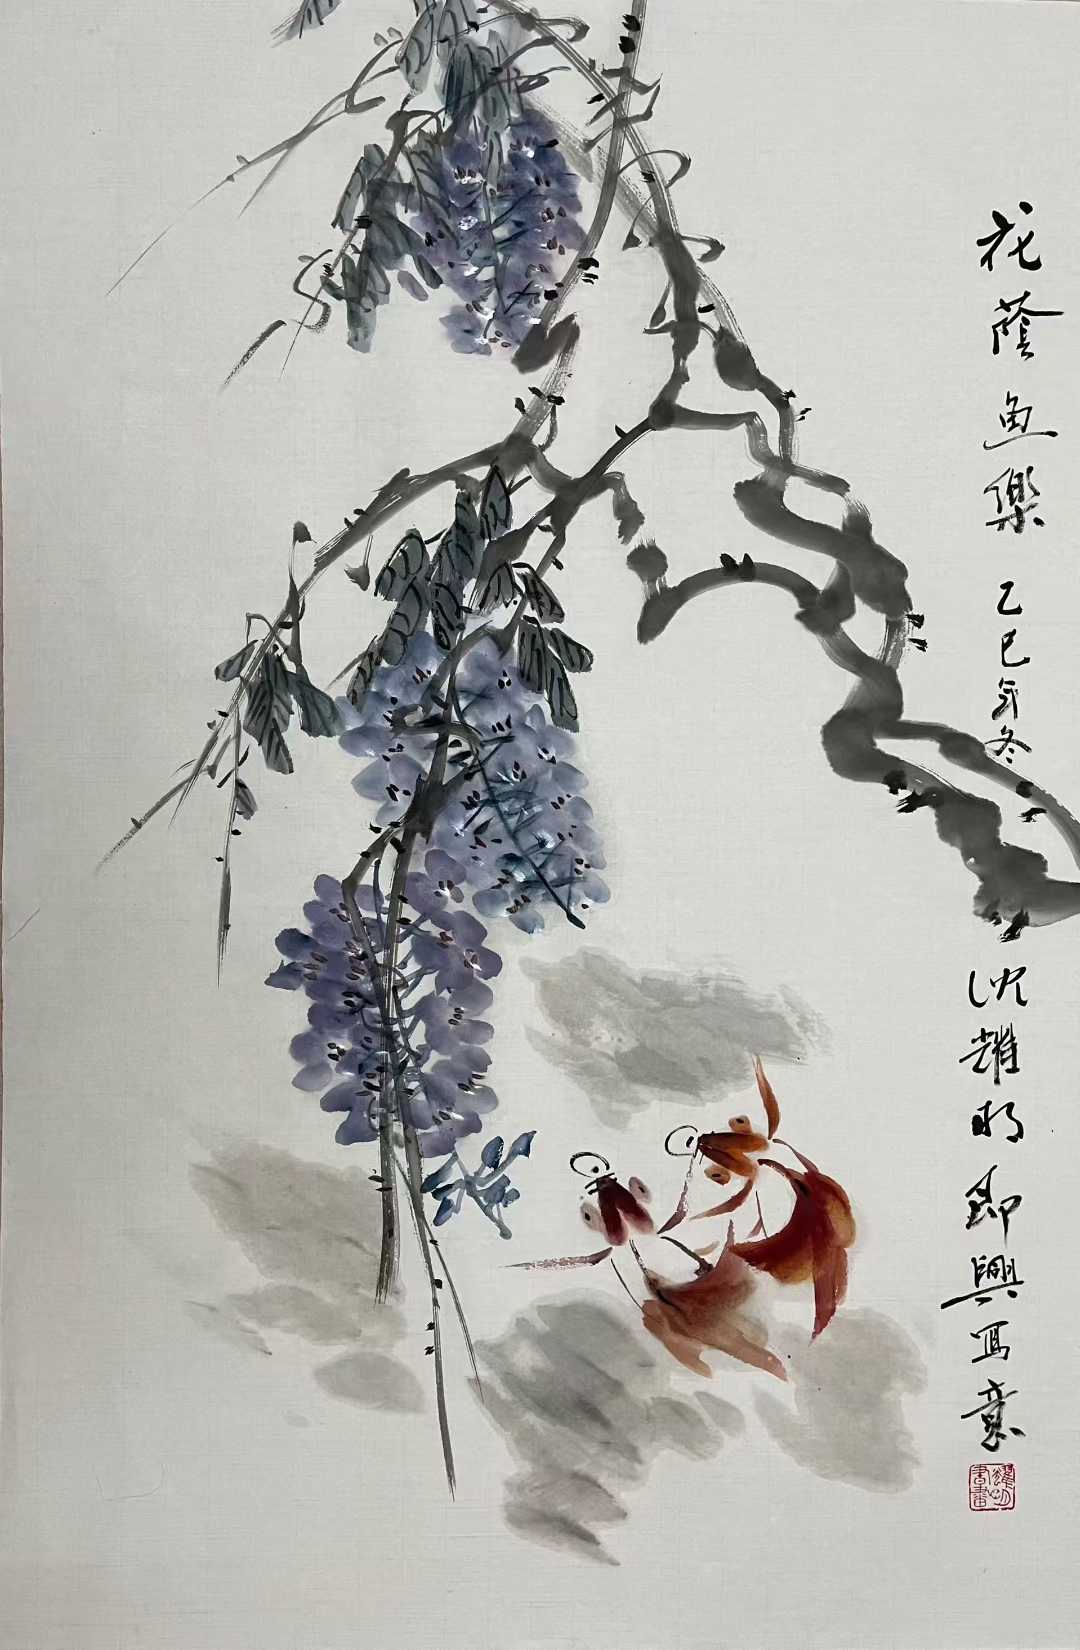 花蔭魚樂 乙巳年冬 沈耀明即興寫意
耀明書畫